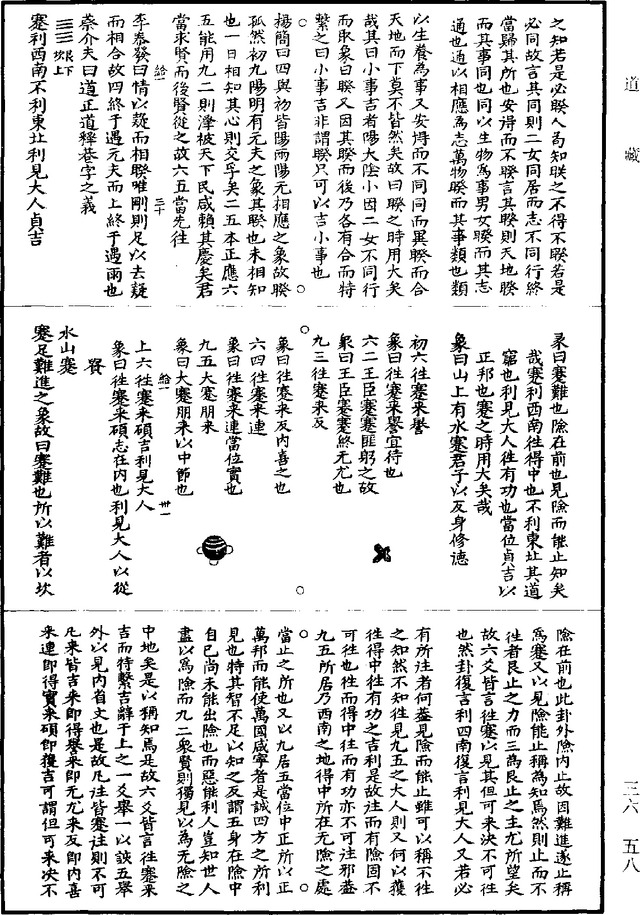 道藏
之知若是必睽人爲知睽之不得不睽若是
必同故言其同則二女同居而志不同行終
當歸其所也安得而不睽言其睽則天地睽
而其事同也同以生物爲事男女睽而其志
通也通以相應爲志萬物睽而其事類也類
以生養爲事又安得而不同同而異睽而合
天地而下莫不皆然矣故曰睽之時用大矣
哉其曰小事吉者陽大陰小因二女不同行
而取象曰睽又因其睽而後乃各有合而特
繫之曰小事吉非謂睽只可以吉小事也
楊簡曰四與初皆陽兩陽无相應之象故睽
孤然初九陽明有元夫之象其睽也未相知
也一日相知其心則交孚矣二五本正應六
五能用九二則澤被天下民咸賴其慶矣君
當求賢而後賢從之故六五當先往
李泰發曰情以疑而相睽唯剛則足以去疑
而相合故四終于遇元夫而上終于遇雨也
蔡介夫曰道正道釋巷字之義
艮下坎上
蹇利西南不利東北利見大人貞吉
彖曰蹇難也險在前也見險而能止知矣
哉蹇利西南往得中也不利東北其道
窮也利見大人往有功也當位貞吉以
正邦也蹇之時用大矣哉
象曰山上有水蹇君子以反身修德
初六往蹇來譽
象曰往蹇來譽宜待也
六二王臣蹇蹇匪躬之故
象曰王臣蹇蹇終无尤也
九三往蹇來反
象曰往蹇來反內喜之也
六四往蹇來連
象曰往蹇來連當位實也
九五大蹇朋來
象曰大蹇朋來以中節也
上六往蹇來碩吉利見大人
象曰往蹇來碩志在內也利見大人以從
貴
水山蹇
蹇足難進之象故曰蹇難也所以難者以坎
險在前也此卦外險內止故因難進遂止稱
爲蹇又以見險能止稱爲知焉然則止而不
往者艮止之力而三爲艮止之主尤所望矣
故六爻皆言往蹇以見其但可來決不可往
也然卦復言利西南復言利見大人又若必
有所往者何蓋見險而能止雖可以稱不往
之知然不知往見九五之大人則又何以獲
往得中往有功之吉利是故往而有險固不
可往也往而得中往而有功亦不可往邪蓋
九五所居乃西南之地得中所在无險之處
當止之所也又以九居五當位中正所以正
萬邦而能使萬國咸寧者是誠四方之所利
見也特其智不足以知之反謂五身在險中
自己尚未能出險也而惡能利人豈知世人
盡以爲險而九二衆賢則獨見以爲无險之
中地矣是以稱知焉是故六爻皆言往蹇來
吉而特繫吉辭于上之一爻舉一以該五舉
外以見內省文也是故凡往皆蹇往則不可
凡來皆吉來即得譽來即无尤來反即內喜
來連即得實來碩即獲吉可謂但可來決不
三六 五八